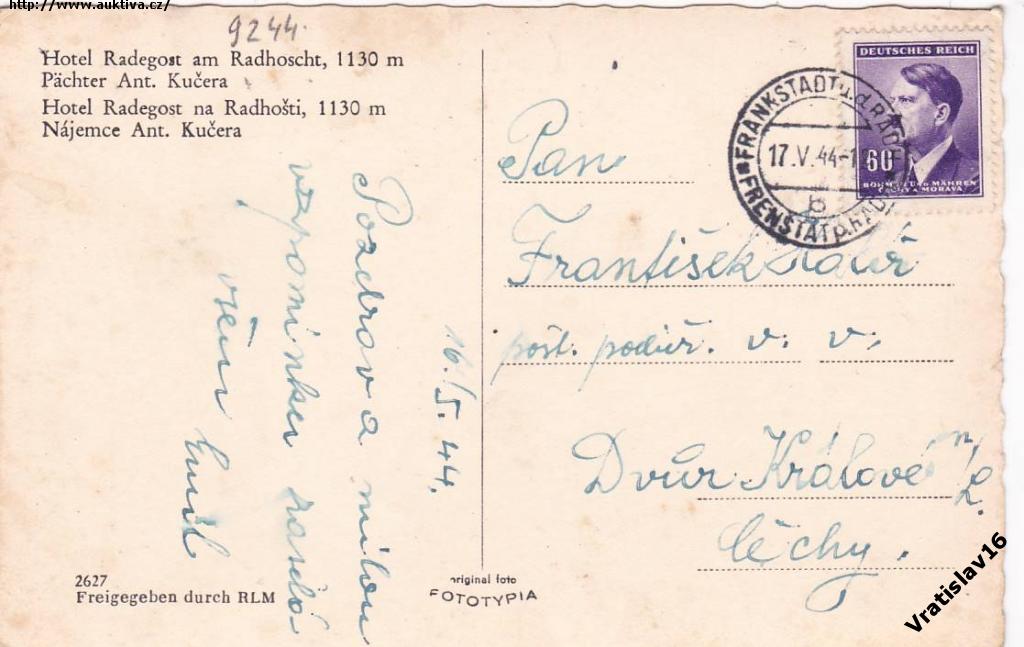 http://www.auktiva.cz/
9244.
Hotel Radegost am Radhoscht, 1130 m
Pächter Ant. Kučera
Hotel Radegost na Radhošti, 1130 m
Nájemce Ant. Kučera
16./5. 44.
Pozdrav a milou
vzpomínku zasílá
všem Emil
DEUTSCHES REICH
60
BÖHMEN UND MÄHREN
ČECHY A MORAVA
FRANKSTADT u.d. RADH
17.V.44-1
b
FRENŠTÁT p. RADH
Pan
František
pošt. podúř. v. v.
Dvůr Králové n/L.
Čechy.
2627
Freigegeben durch RLM
original foto
FOTOTYPIA
Vratislav16